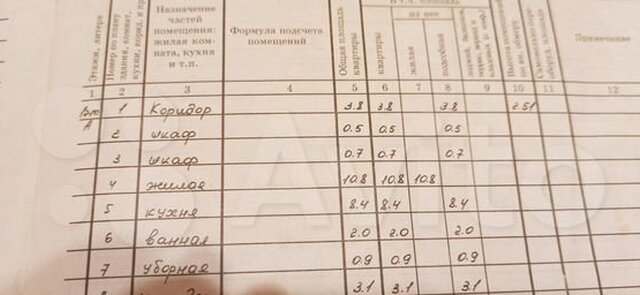 В т.ч. площадь
Этажи, литера
Номер по плану
здания, комнат,
Назначение
частей
помещения:
жилая ком-
ната, кухня
и т.п.
Формула подсчета
помещений
Общая площадь
квартиры
из нее
квартиры
жилая
подсобная
Примечание
1 2 3 4 5 6 7 8 9 10 11 12
А 1 Коридор 3.8 3.8 3.8 2.51
2 шкаф 0.5 0.5 0.5
3 шкаф 0.7 0.7 0.7
4 жилая 10.8 10.8 10.8
5 кухня 8.4 8.4 8.4
6 ванная 2.0 2.0 2.0
7 уборная 0.9 0.9 0.9
3.1 3.1 3.1
Avito